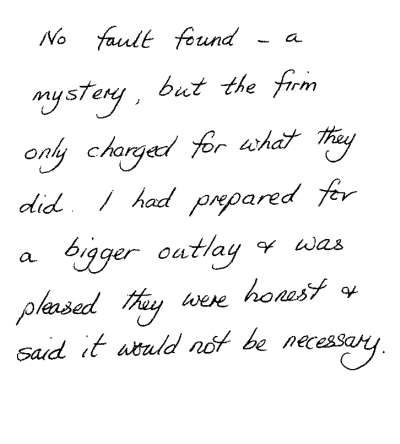 No fault found - a
mystery, but the firm
only charged for what they
did. I had prepared for
a bigger outlay & was
pleased they were honest &
said it would not be necessary.